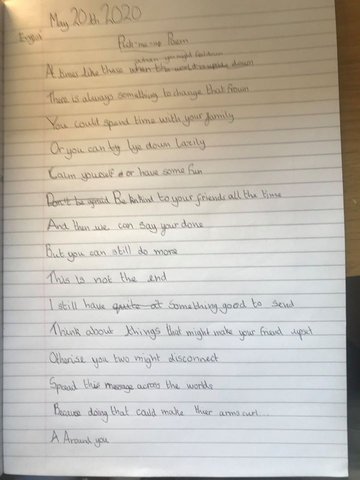 May 20th 2020
English
Pick-me-up Poem
when you might feel down
At times like these when the world is upside down
There is always something to change that frown
You could spend time with your family
Or you can try lye down Lazily
Calm youself or have some fun
Don't be afraid Be kind to your friends all the time
And then we can say your done
But you can still do more
This is not the end
I still have quite at something good to send
Think about things that might make your friend upset
Otherise you two might disconnect
Spead this message across the worlds
Because doing that could make thier arms curl...
A Around you